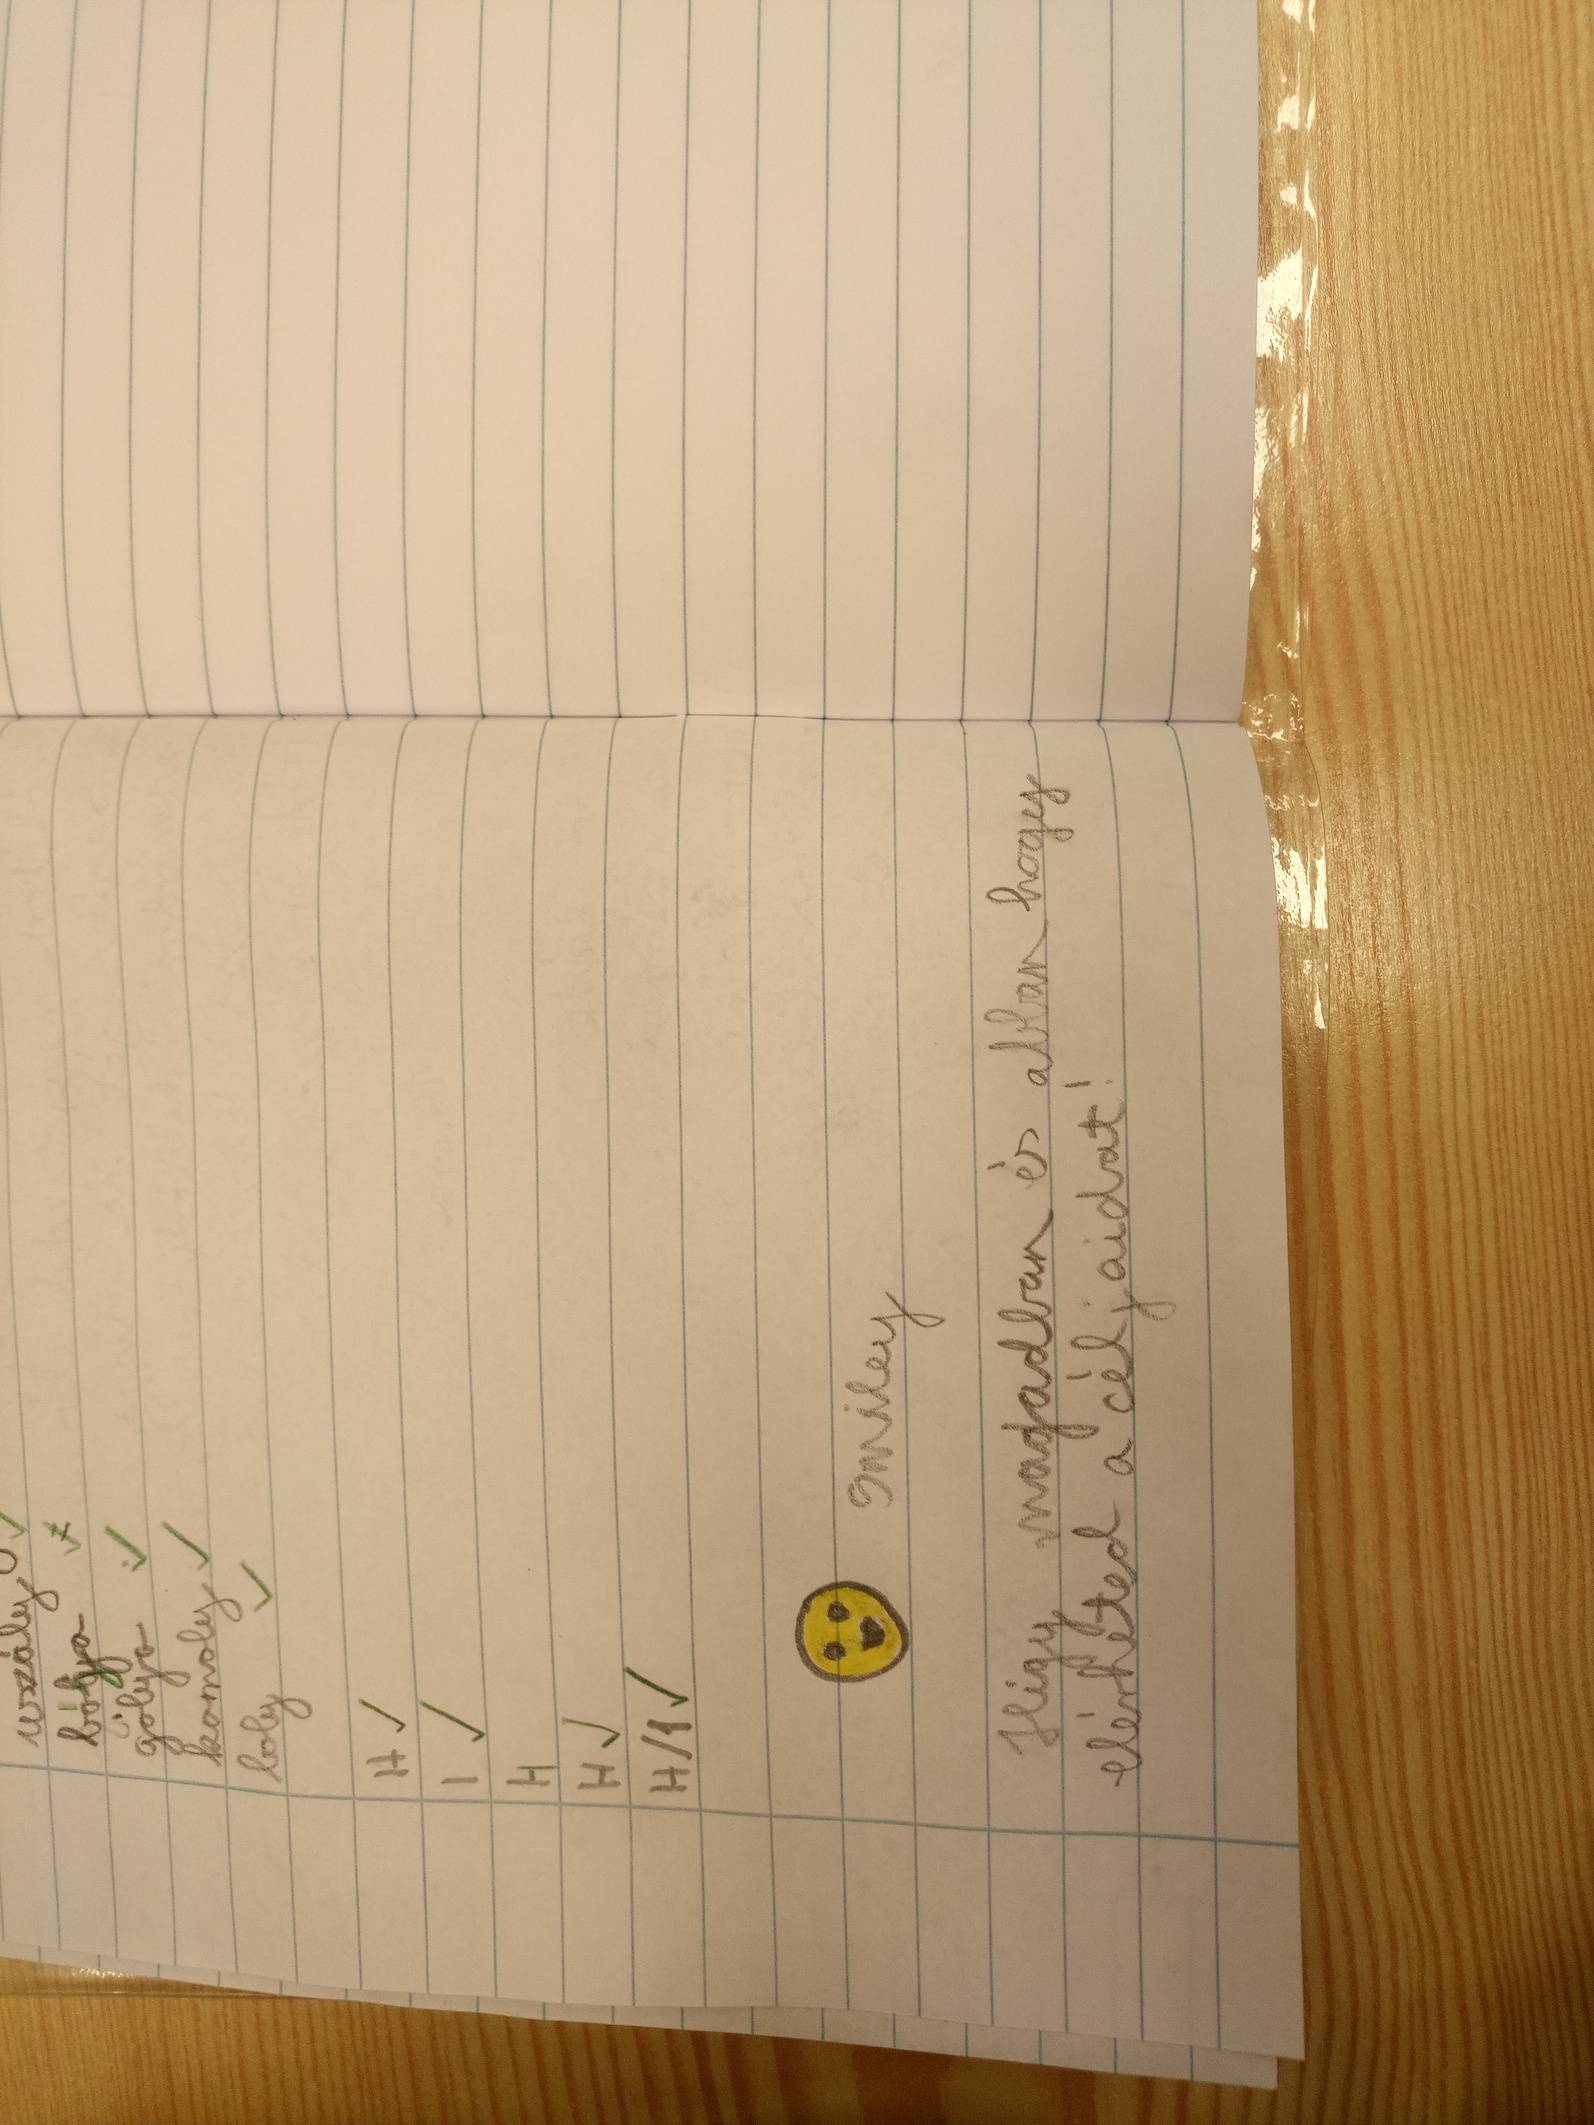 uszály
bólya
gólya
komoly
boly
H
I
H
H
H/1
Smiley
Higy magadban és abban hogy
elérheted a céljaidat!